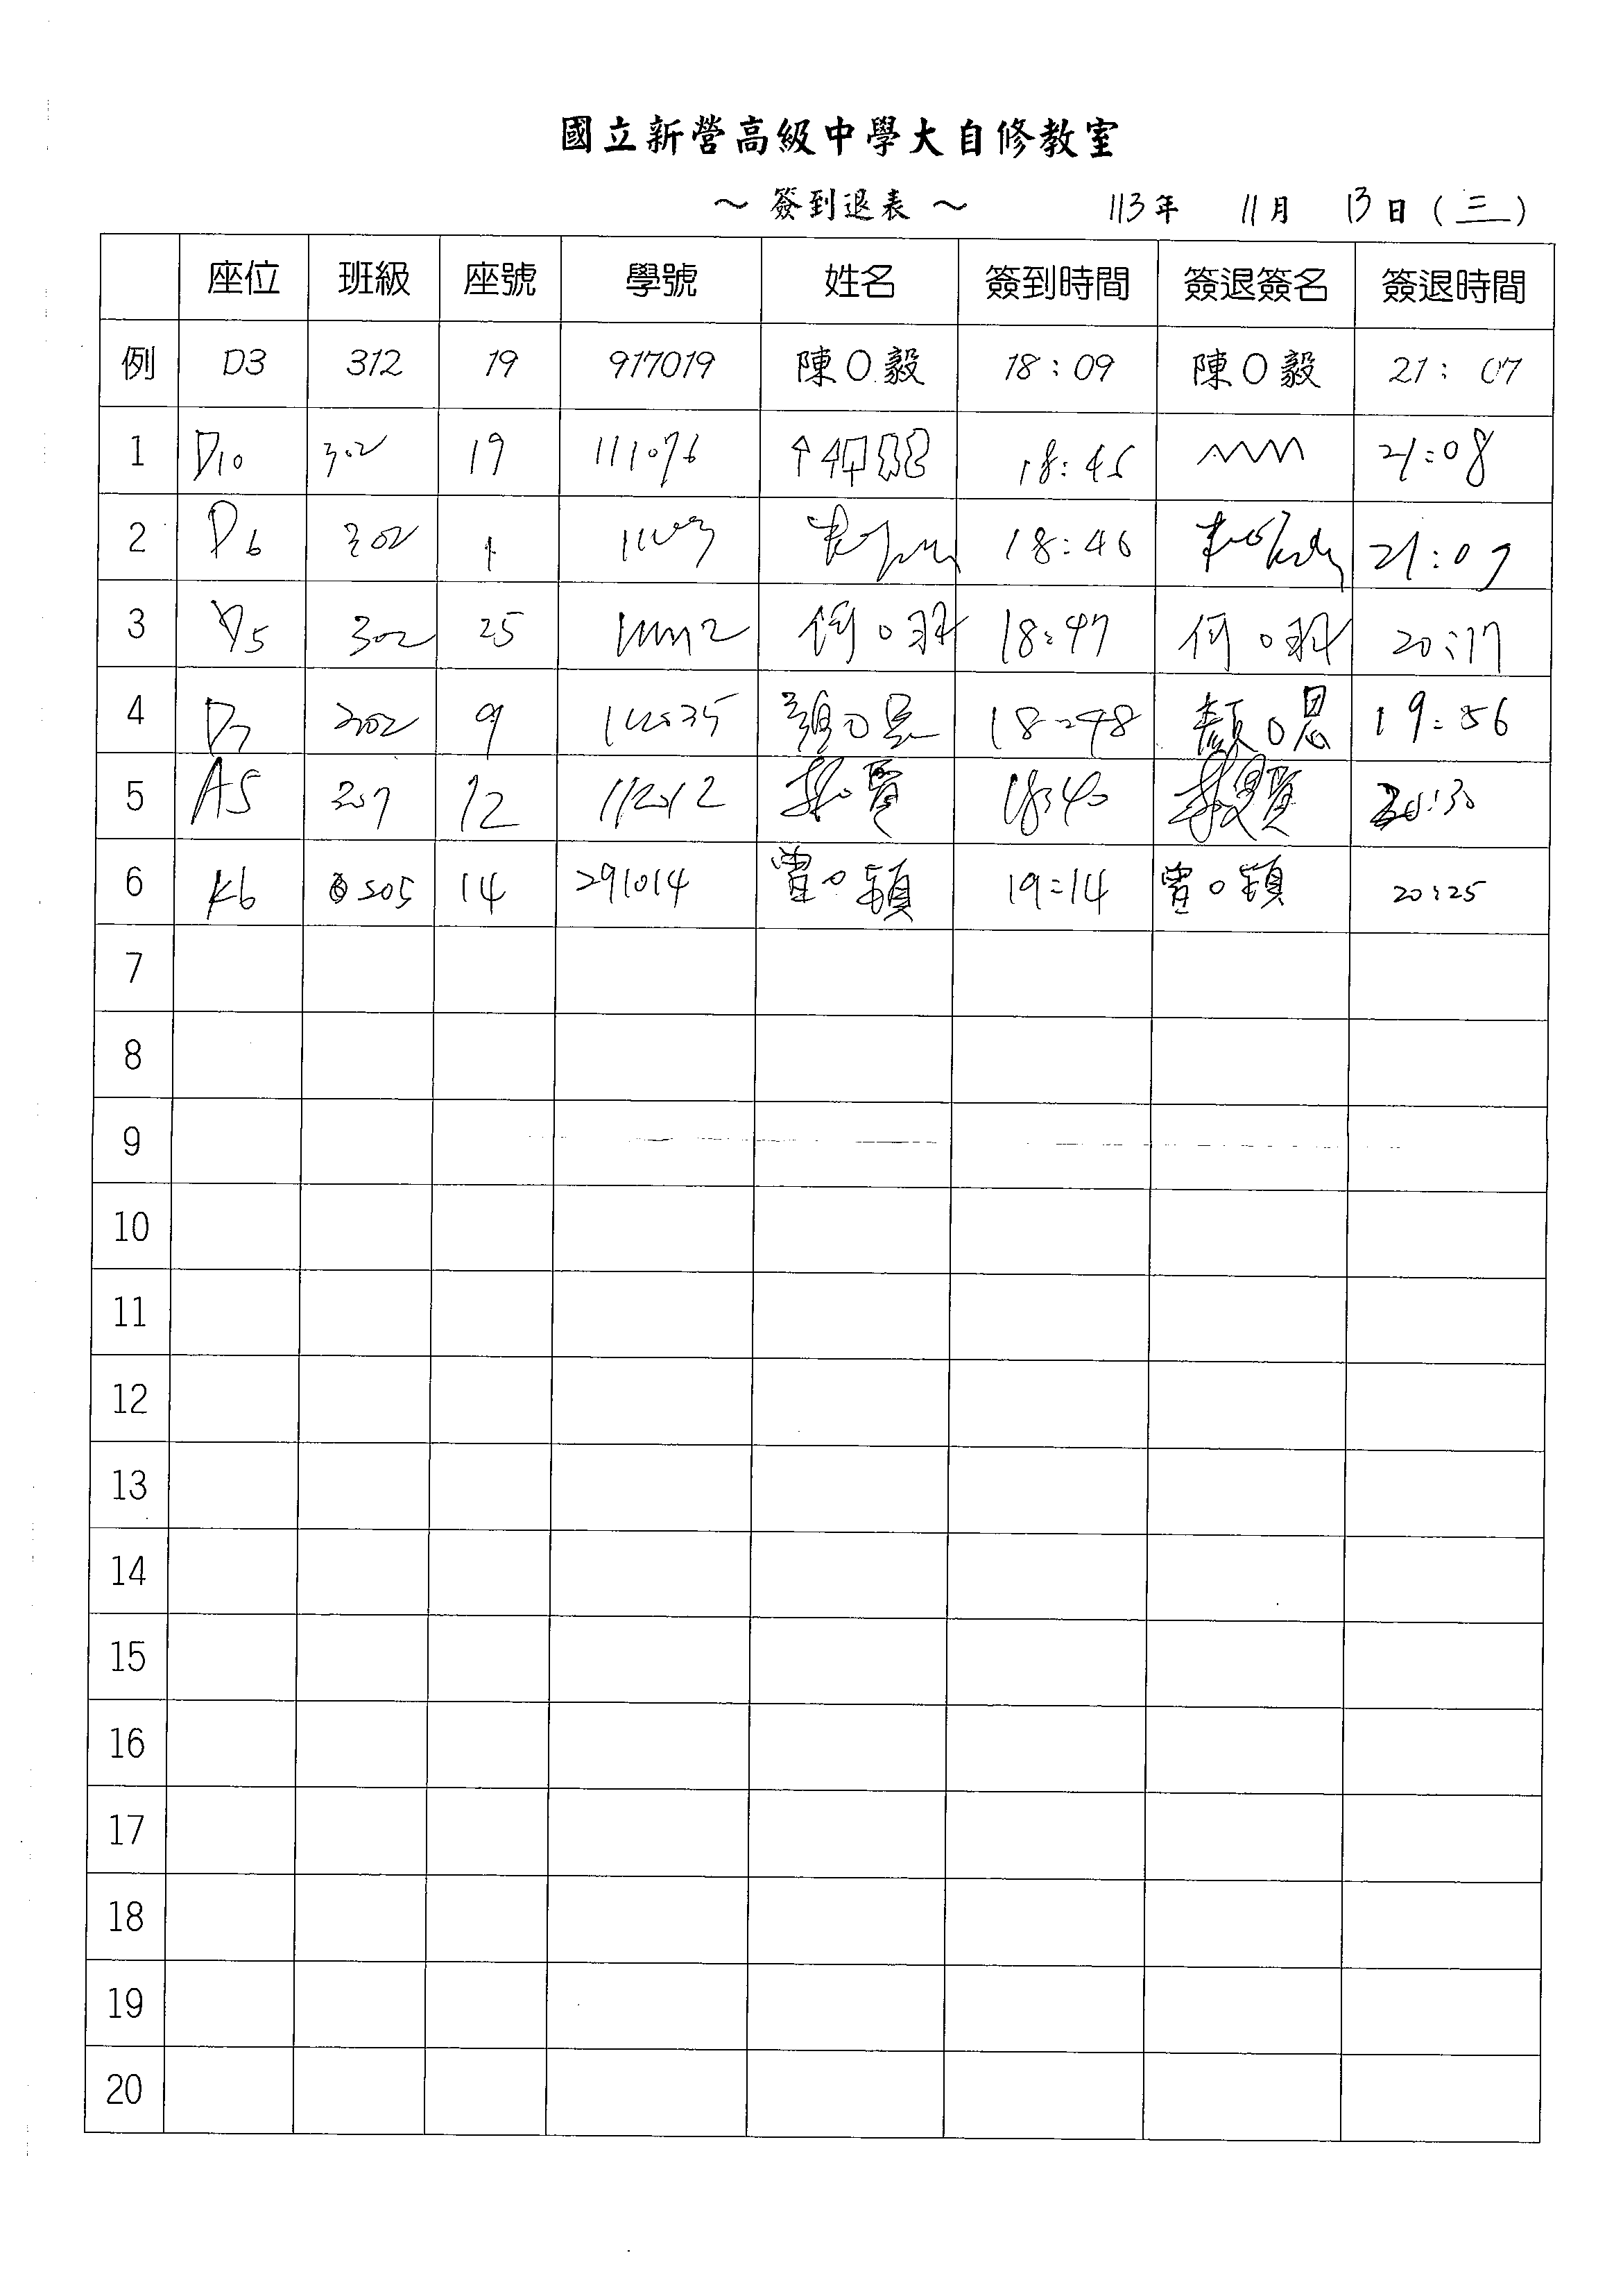 國立新營高級中學大自修教室
～ 簽到退表 ～ 113年 11月 13日 (三)
座位 班級 座號 學號 姓名 簽到時間 簽退簽名 簽退時間
例 D3 312 19 917019 陳O毅 18:09 陳O毅 21:07
1 D10 302 19 111076 18:45 21:08
2 D6 302 1 18:46 21:07
3 D5 302 25 何O羽 18:47 何O羽 20:17
4 D7 302 9 顏O恩 18:48 顏O恩 19:56
5 A5 207 12 112012 18:40 20:30
6 K6 505 14 291014 曾O穎 19:14 曾O穎 20:25
7
8
9
10
11
12
13
14
15
16
17
18
19
20